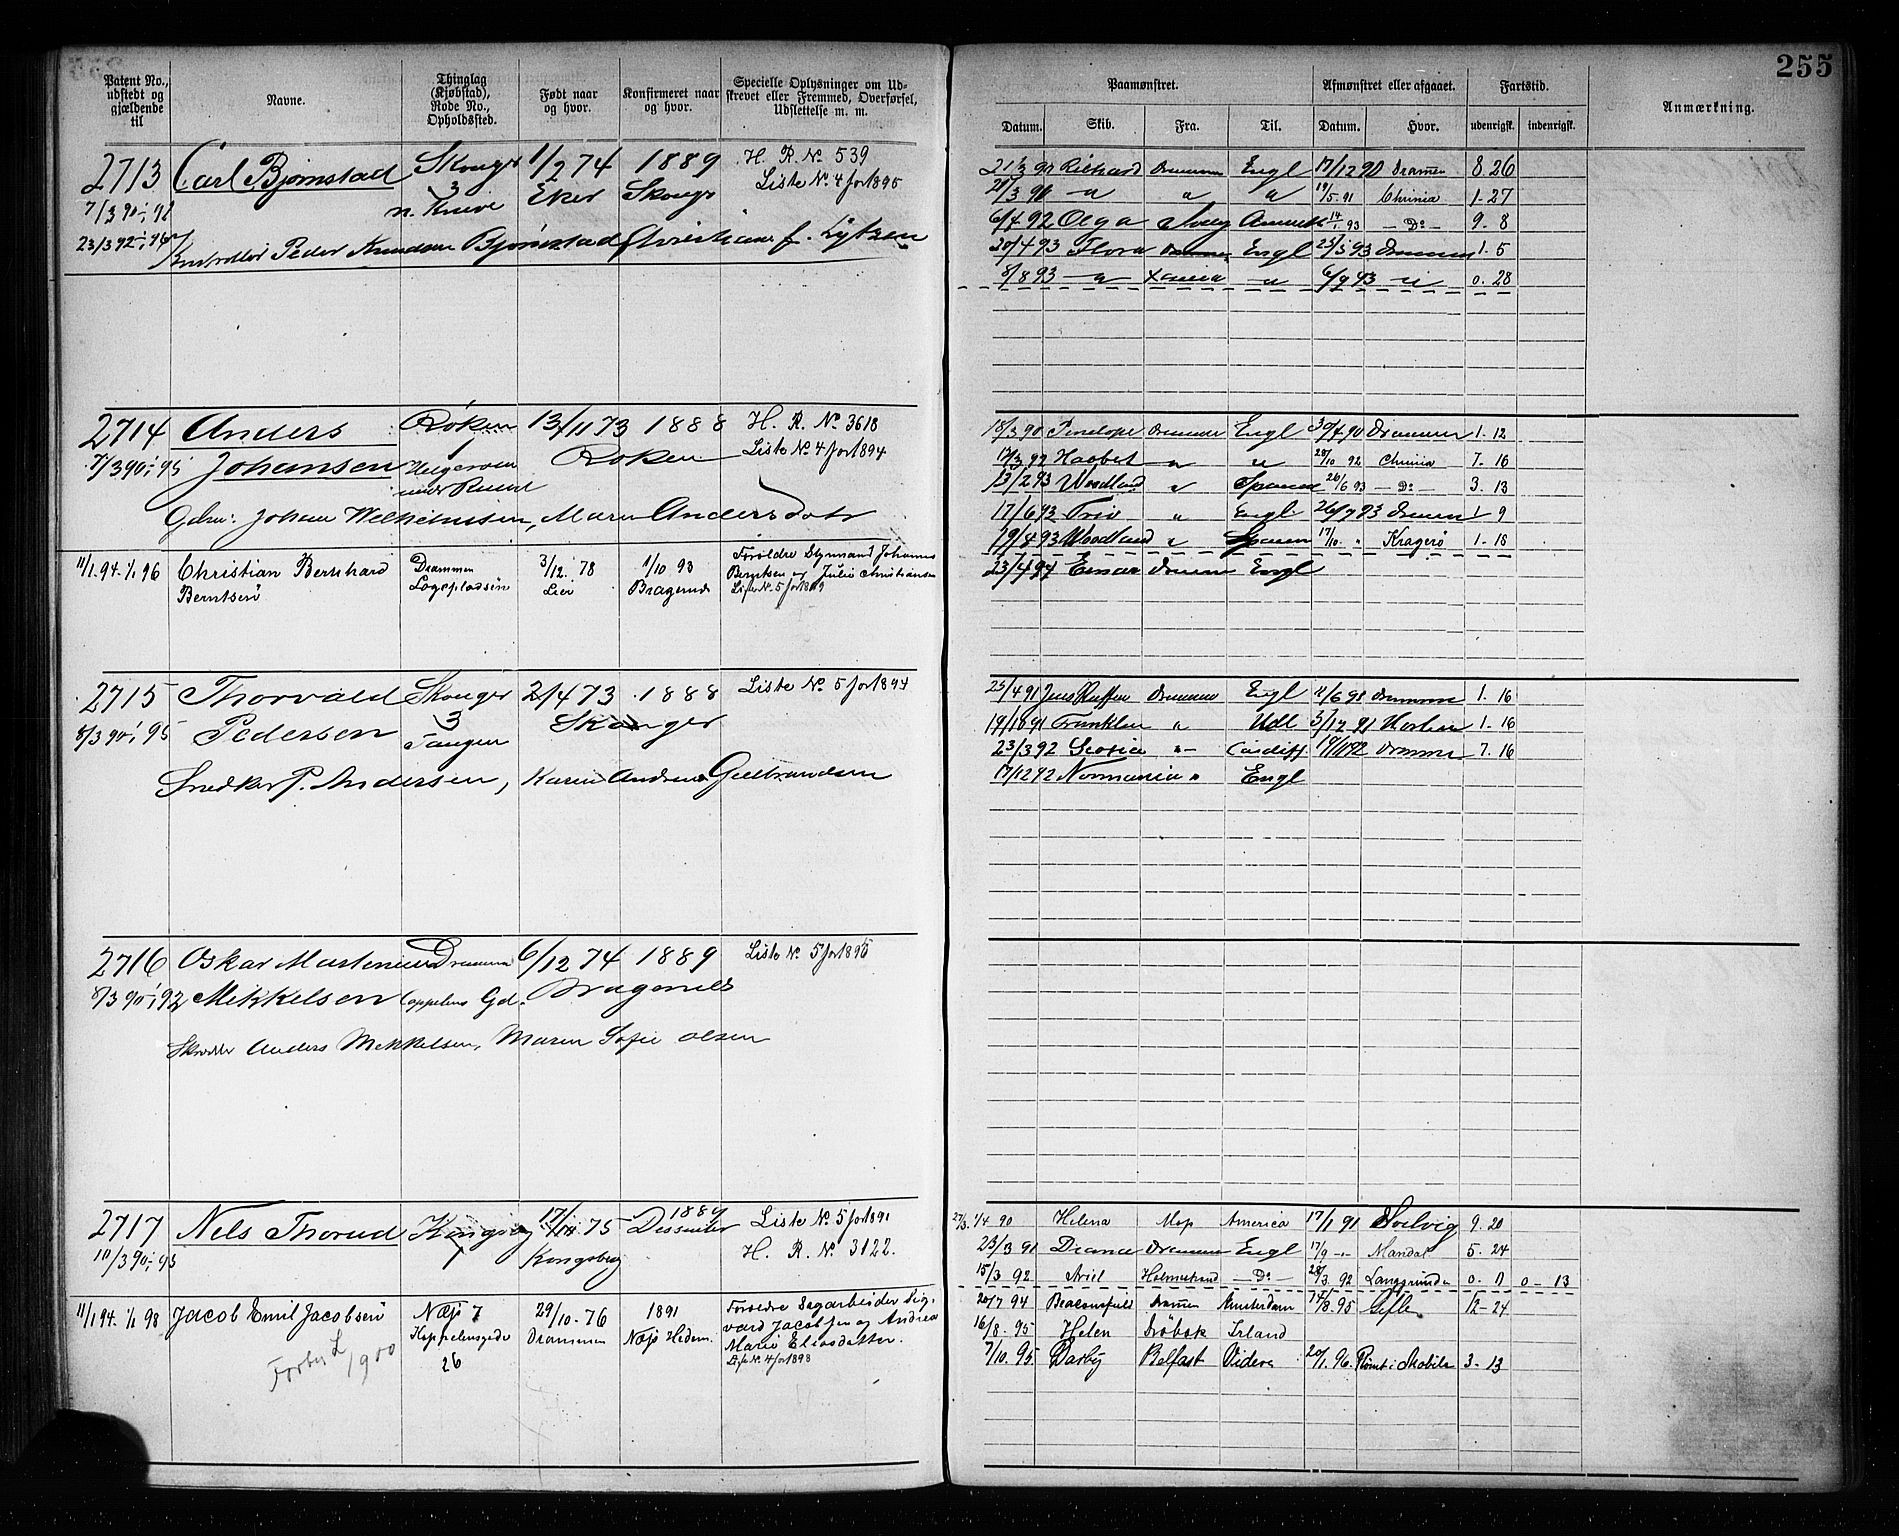 255
Patent No., udstedt og gjældende til
Navne.
Thinglag (Kjøbstad), Rode No., Opholdssted.
Født naar og hvor.
Konfirmeret naar og hvor.
Specielle Oplysninger om Udskrevet eller Fremmed, Overførsel, Udslettelse m. m.
Paamønstret.
Afmønstret eller afgaaet.
Fartstid.
Anmærkning.
Datum. Skib. Fra. Til. Datum. Hvor. udenrigsk. indenrigsk.
2713 Carl Bjørnstad Skouger 1/2 74 1889 H. R. No 539
3 Eker Skoug Liste No 4 for 1895
7/3 90 1/1 92
23/3 92 Peder Knudsen Bjørnstad f. Lytzen
21/3 90 Richard Drammen Engl 17/12 90 Drammen 8. 26
Chrinia 1-27
6/4 92 Olga 14/1 93 - Do - 9. 8
20/4 93 Flora Drammen Engl 25/5 93 Drammen 1. 5
8/8 93 6/9 93 0. 28
2714 Anders Røken 13/11 73 1888 H. R. No 3618
7/3 90 1/1 95 Johansen Røken Liste No 4 for 1894
Johan Wilhelmsen, Maren Andersdatr
18/3 90 Penelope Drammen Engl 30/4 90 Drammen 1. 12
17/3 92 Haabet 28/10 92 Chrinia 7. 16
13/2 93 Woodland Spanien 26/6 93 - Do - 3. 13
17/6 93 Engl 26/7 93 Drammen 1 9
19/8 93 Woodland Spanien 17/10 Kragerø 1. 18
23/4 94 Einar Drammen Engl
11/1 94 1/1 96 Christian Bernhard Drammen 3/12. 78 1/10 93 Forældre Johannes
Berntsen Løgepladsen Lier Bragernæs Berntsen og Julie Christiansen
Liste No 5 for 1889
2715 Thorvald Skouger 2/4 73 1888 Liste No 5 for 1894
8/3 90 1/1 95 Pedersen 3 Tangen Skouger
Snedker P. Andersen, Karen Andrea Gulbrandsen
25/4 91 Drammen Engl 11/6 91 Drammen 1. 16
Franklin Udl 3/12 91 Horten 1. 16
23/3 92 Scotia Cardiff Drammen 7. 16
17/12 92 Normania Engl
2716 Oskar Martinius Drammen 6/12 74 1889 Liste No 5 for 1895
8/3 90 1/1 92 Mikkelsen Cappelens Gd. Bragernes
Anders Mikkelsen, Maren Sofie Olsen
2717 Nels Thorud Kongsberg 75 1889 Liste No 5 for 1891
10/3 90 1/1 95 Kongsberg H. R. No 3122.
27/3. 1/4 90 Helena Mop America 17/1 91 Svelvig 9. 20
23/3 91 Diana Drammen Engl 17/9 Mandal 5. 24
15/3 92 Ariel Holmestrand - Do - 28/3 92 Langgrunden 0. 0 - 13
11/1 94 1/1 98 Jacob Emil Jacobsen Næs 7 29/10. 76 1891 Forældre Sagarbeider Sig-
Koppelensgede Drammen Næs Hedem. vard Jacobsen og Andrea
26 Marie Eliasdatter.
Liste No 4 for 1898
1900
20/7 94 Beaconsfield Drammen Amsterdam 14/8. 95 Gefle 12 - 24
16/8. 95 Helen Drøbak Irland
7/10. 95 Darby Belfast Videre 20/1. 96. Rømt i Mobile 3 - 13